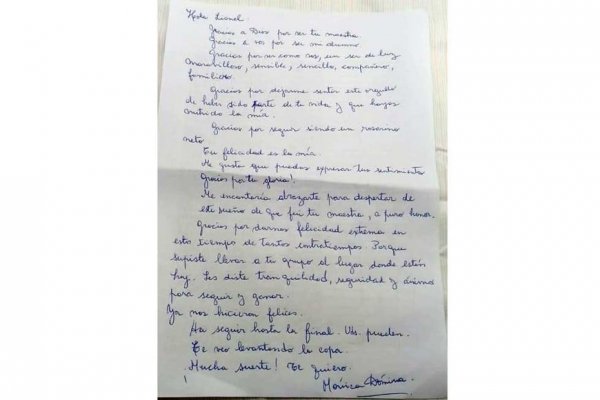 Hola Lionel.
Gracias a Dios por ser tu maestra.
Gracias a vos por ser mi alumno.
Gracias por ser como sos, un ser de luz
maravilloso, sensible, sencillo, compañero,
familiero.
Gracias por dejarme sentir este orgullo
de haber sido parte de tu vida y que hayas
nutrido la mía.
Gracias por seguir siendo un rosarino
neto.
Tu felicidad es la mía.
Me gusta que puedas expresar tus sentimientos
Gracias por tu gloria!
Me encantaría abrazarte para despertar de
este sueño de que fui tu maestra, a puro honor.
Gracias por darnos felicidad extrema en
este tiempo de tantos contratiempos Porque
supiste llevar a tu grupo al lugar donde están
hoy. Les diste tranquilidad, seguridad y ánimo
para seguir y ganar.
Ya nos hicieron felices.
Ha seguir hasta la final. Uds. pueden.
Te veo levantando la copa.
Mucha suerte! Te quiero.
Mónica Dómina